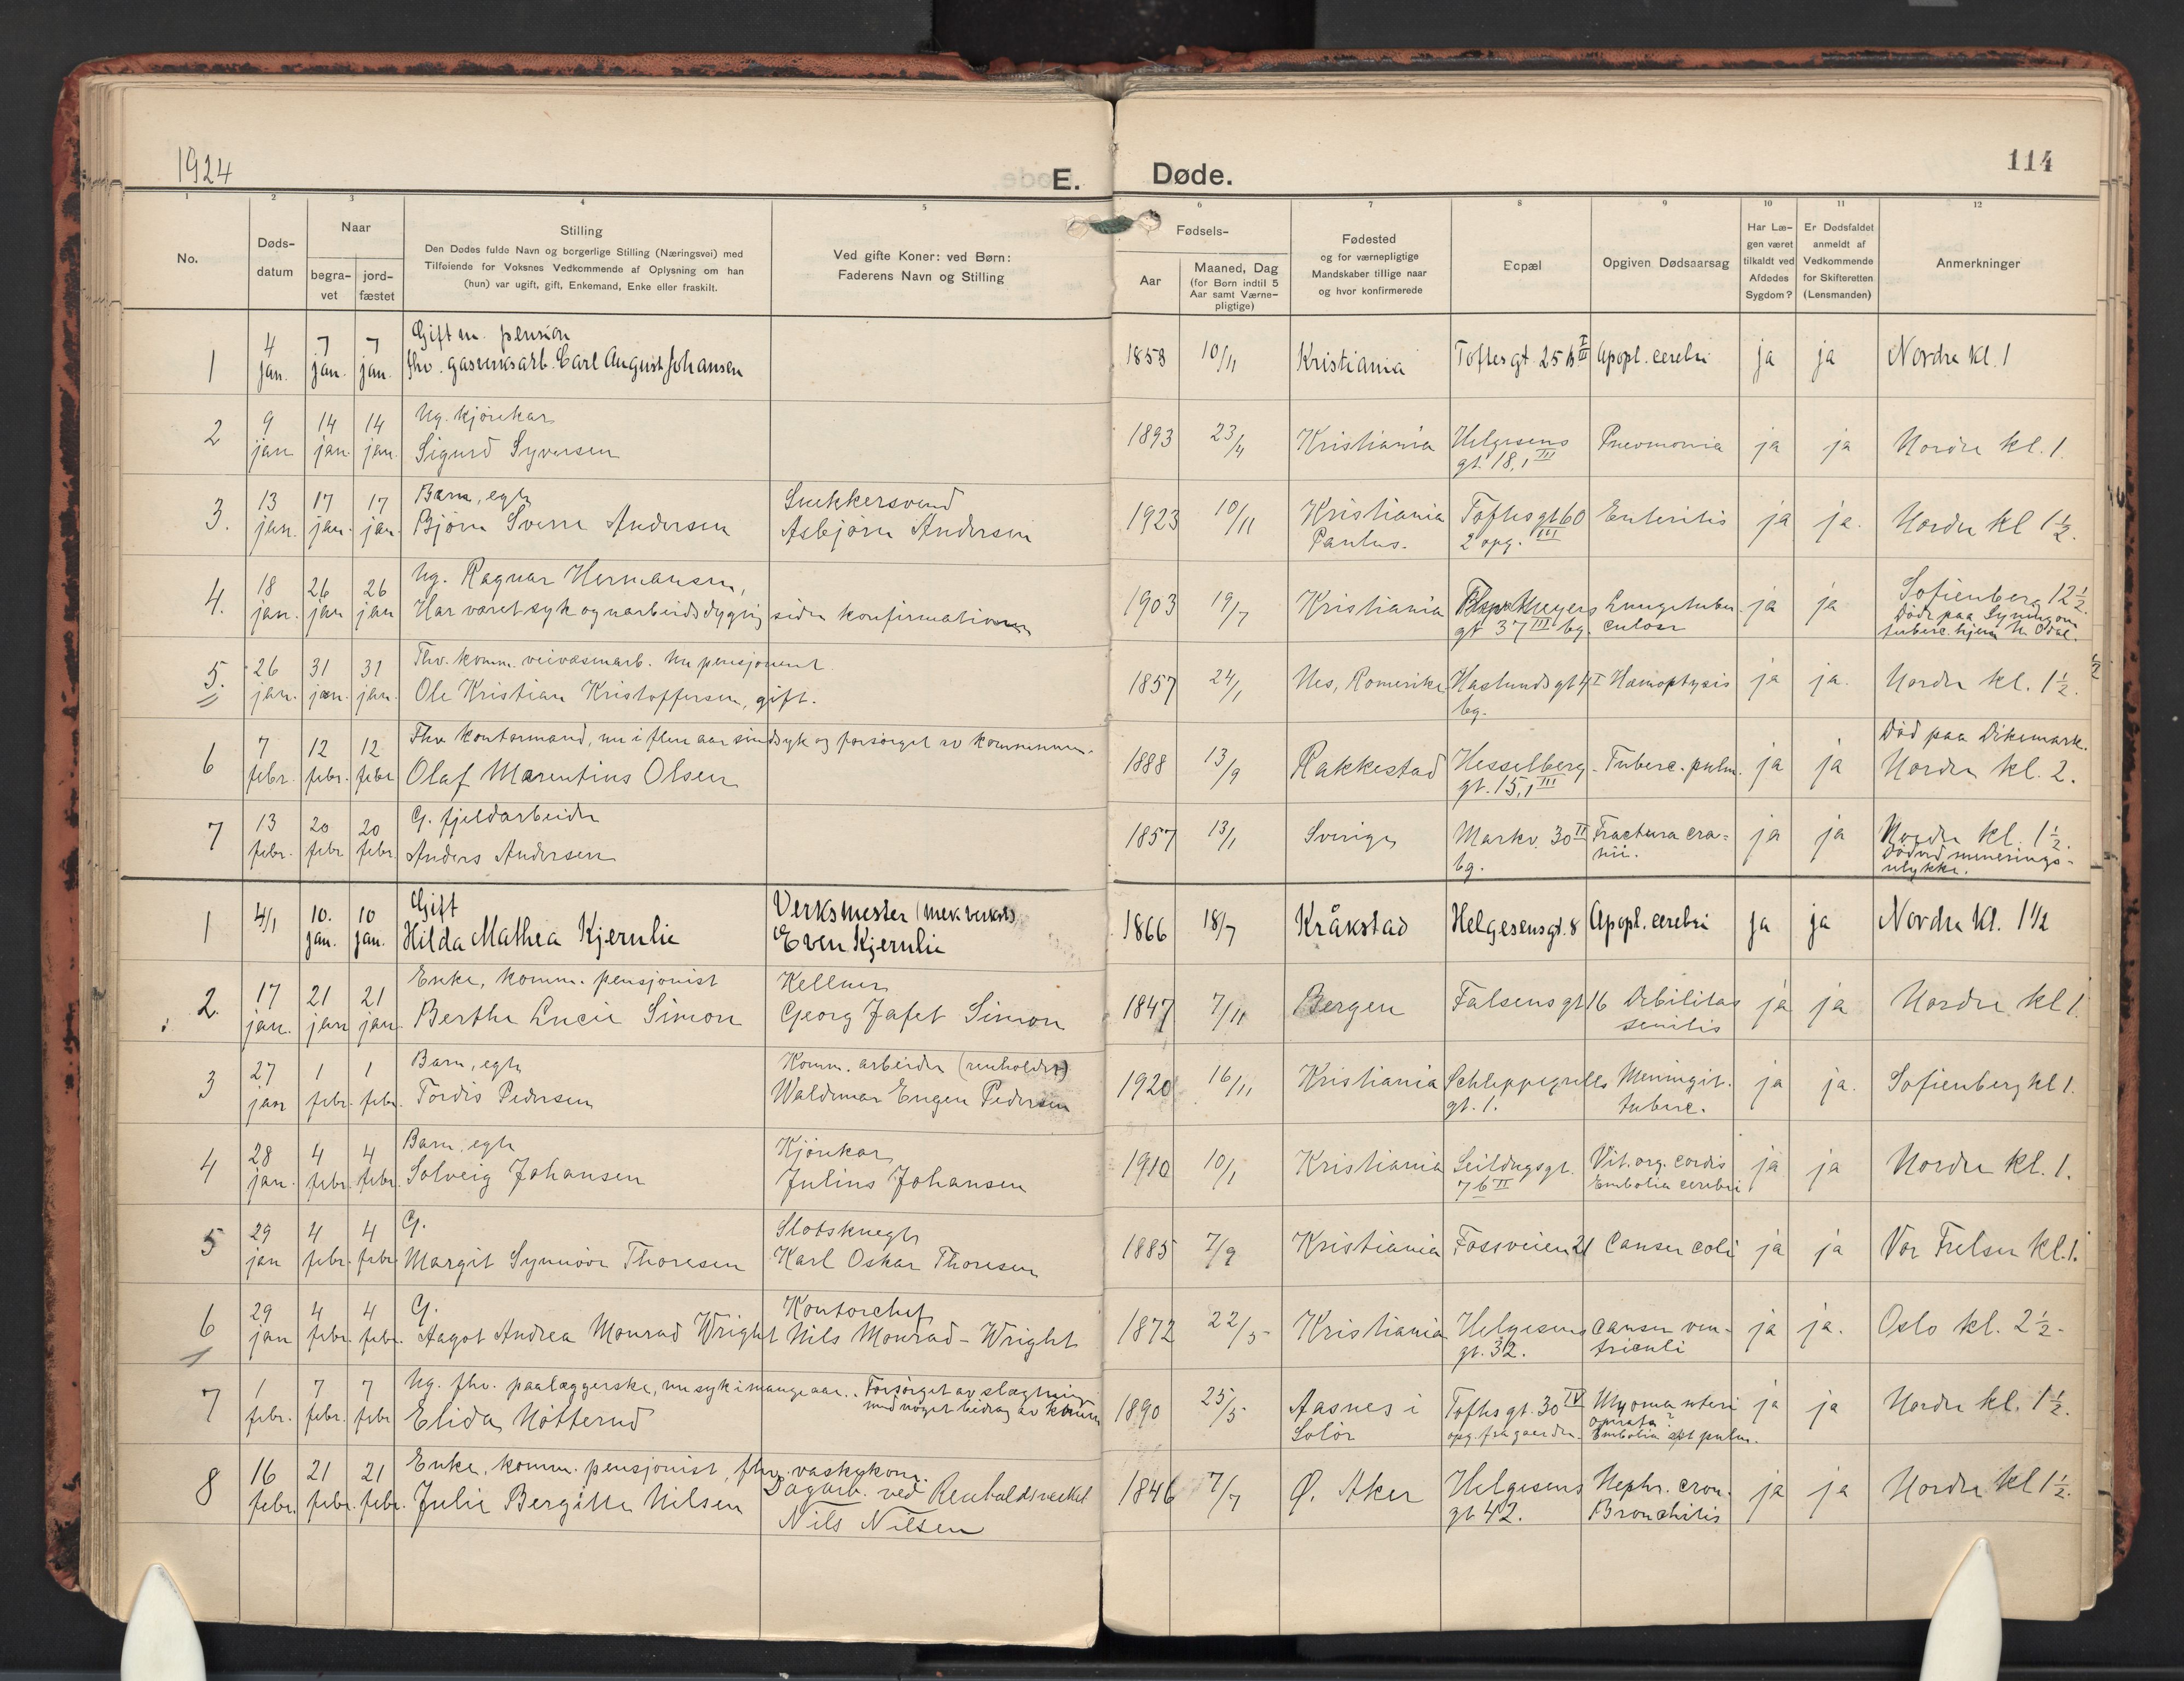 1924
E. Døde.
114
1 2 3 4 5 6 7 8 9 10 11 12
No.
Døds-
datum
Naar
begra-
vet
jord-
fæstet
Stilling
Den Dødes fulde Navn og borgerlige Stilling (Næringsvei) med
Tilføiende for Voksnes Vedkommende af Oplysning om han
(hun) var ugift, gift, Enkemand, Enke eller fraskilt.
Ved gifte Koner: ved Børn:
Faderens Navn og Stilling
Fødsels-
Aar
Maaned, Dag
(for Børn indtil 5
Aar samt Værne-
pligtige)
Fødested
og for værnepligtige
Mandskaber tillige naar
og hvor konfirmerede
Bopæl
Opgiven Dødsaarsag
Har Læ-
gen været
tilkaldt ved
Afdødes
Sygdom?
Er Dødsfaldet
anmeldt af
Vedkommende
for Skifteretten
(Lensmanden)
Anmerkninger
Gift m. pension
1 4 jan. 7 jan. 7 jan. fhv. gasverksarb. Carl August Johansen 1853 10/11 Kristiania Toftesgt. 25 Apopl. cerebri ja ja Nordre kl. 1
Ug. kjørekar
2 9 jan 14 jan. 14 jan. Sigurd Syversen 1893 23/4 Kristiania Helgesens gt. 18, 1 III Pneumonia ja ja Nordre kl. 1.
Barn, egte Snekkersvend
3. 13 jan. 17 jan. 17 jan. Bjørn Sverre Andersen Asbjørn Andersen 1923 10/11 Kristiania Paulus. Toftesgt 60 III 2 opg. Enteritis ja ja. Nordre kl 1 1/2.
Ug. Ragnar Hermansen,
4. 18 jan. 26 jan 26 jan Har været syk og uarbeidsdygtig siden konfirmationen 1903 19/7 Kristiania Meyers gt 37 III bg. Lungetuberculose ja ja Sofienberg 12 1/2.
Døde paa
tuberc. hjem N. Odal.
Fhv. komm. veivæsenarb. nu pensjonert
5. 26 jan. 31 jan. 31 jan. Ole Kristian Kristoffersen, gift. 1857 24/1 Nes, Romerike Haslunds gt 4 I bg. Hæmoptysis ja ja. Nordre kl. 1 1/2.
Fhv. kontormand, nu i flere aar sindsyk og forsørget av kommunen. Død paa Dikemark.
6 7 febr. 12 febr. 12 febr Olaf Marentius Olsen 1888 13/9 Rakkestad Hesselberg- gt. 15, 1 III Tuberc. pulm. ja ja Nordre kl. 2.
G. fjeldarbeider
7 13 febr. 20 febr 20 febr. Anders Andersen 1857 13/1 Sverige Markv. 30 II bg. Fractura cra- nii. ja ja Nordre kl. 1 1/2.
Død ved minerings-
ulykke.
Gift Verksmester (mek. verkst)
1 4/1 10. jan. 10 jan. Hilda Mathea Kjernlie Even Kjernlie 1866 18/7 Kråkstad Helgesensgt. 8 Apopl. cerebri ja ja Nordre Kl. 1 1/2
Enke, komm. pensjonist Kellner
2. 17 jan. 21 jan 21 jan. Berthe Lucie Simon Georg Jafet Simon 1847 7/11 Bergen Falsensgt 16 Debilitas senilis ja ja Nordre kl 1.
Barn, egte Komm. arbeider (renholdsv)
3 27 jan 1 febr. 1 febr. Tordis Pedersen Waldemar Eugen Pedersen 1920 16/11 Kristiania Schleppegrells gt. 1. Meningit. tuberc. ja ja. Sofienberg kl 1.
Barn, egte Kjørekar
4 28 jan. 4 febr. 4 febr. Solveig Johansen Julius Johansen 1910 10/1 Kristiania Seildugsgt. 7 b II Vit. org. cordis Embolia cerebri ja ja Nordre kl. 1.
G. Slotsknegt
5 29 jan 4 febr. 4 febr. Margit Synnøve Thoresen Karl Oskar Thoresen 1885 7/9 Kristiania Fossveien 21 Cancer coli ja ja Vor Frelser kl. 1.
G. Kontorchef
6 29 jan 4 febr. 4 febr. Aagot Andrea Monrad Wright Nils Monrad-Wright 1872 22/5 Kristiania Helgesens gt. 32. Cancer ven- triculi ja ja. Oslo kl. 2 1/2-
Ug. fhv. paalæggerske, nu syk i mange aar. Forsørget av slegtninge
med noget bidrag av komm
7 1 febr. 7 febr. 7 febr Elida Nötterud 1890 25/5 Aasnes i Solör Toftes gt. 30 IV opg. fra gaarden. Myoma uteri operata? Embolia pulm. ja ja Nordre kl. 1 1/2.
Enke, komm. pensjonist, fhv. vaskekone.
8 16 febr. 21 febr. 21 febr. Julie Bergitte Nilsen Dagarb. ved Renholdsverket
Nils Nilsen 1846 7/7 Ø. Aker Helgesens gt 42. Nephr. cron. Bronchitis ja ja Nordre kl 1 1/2.